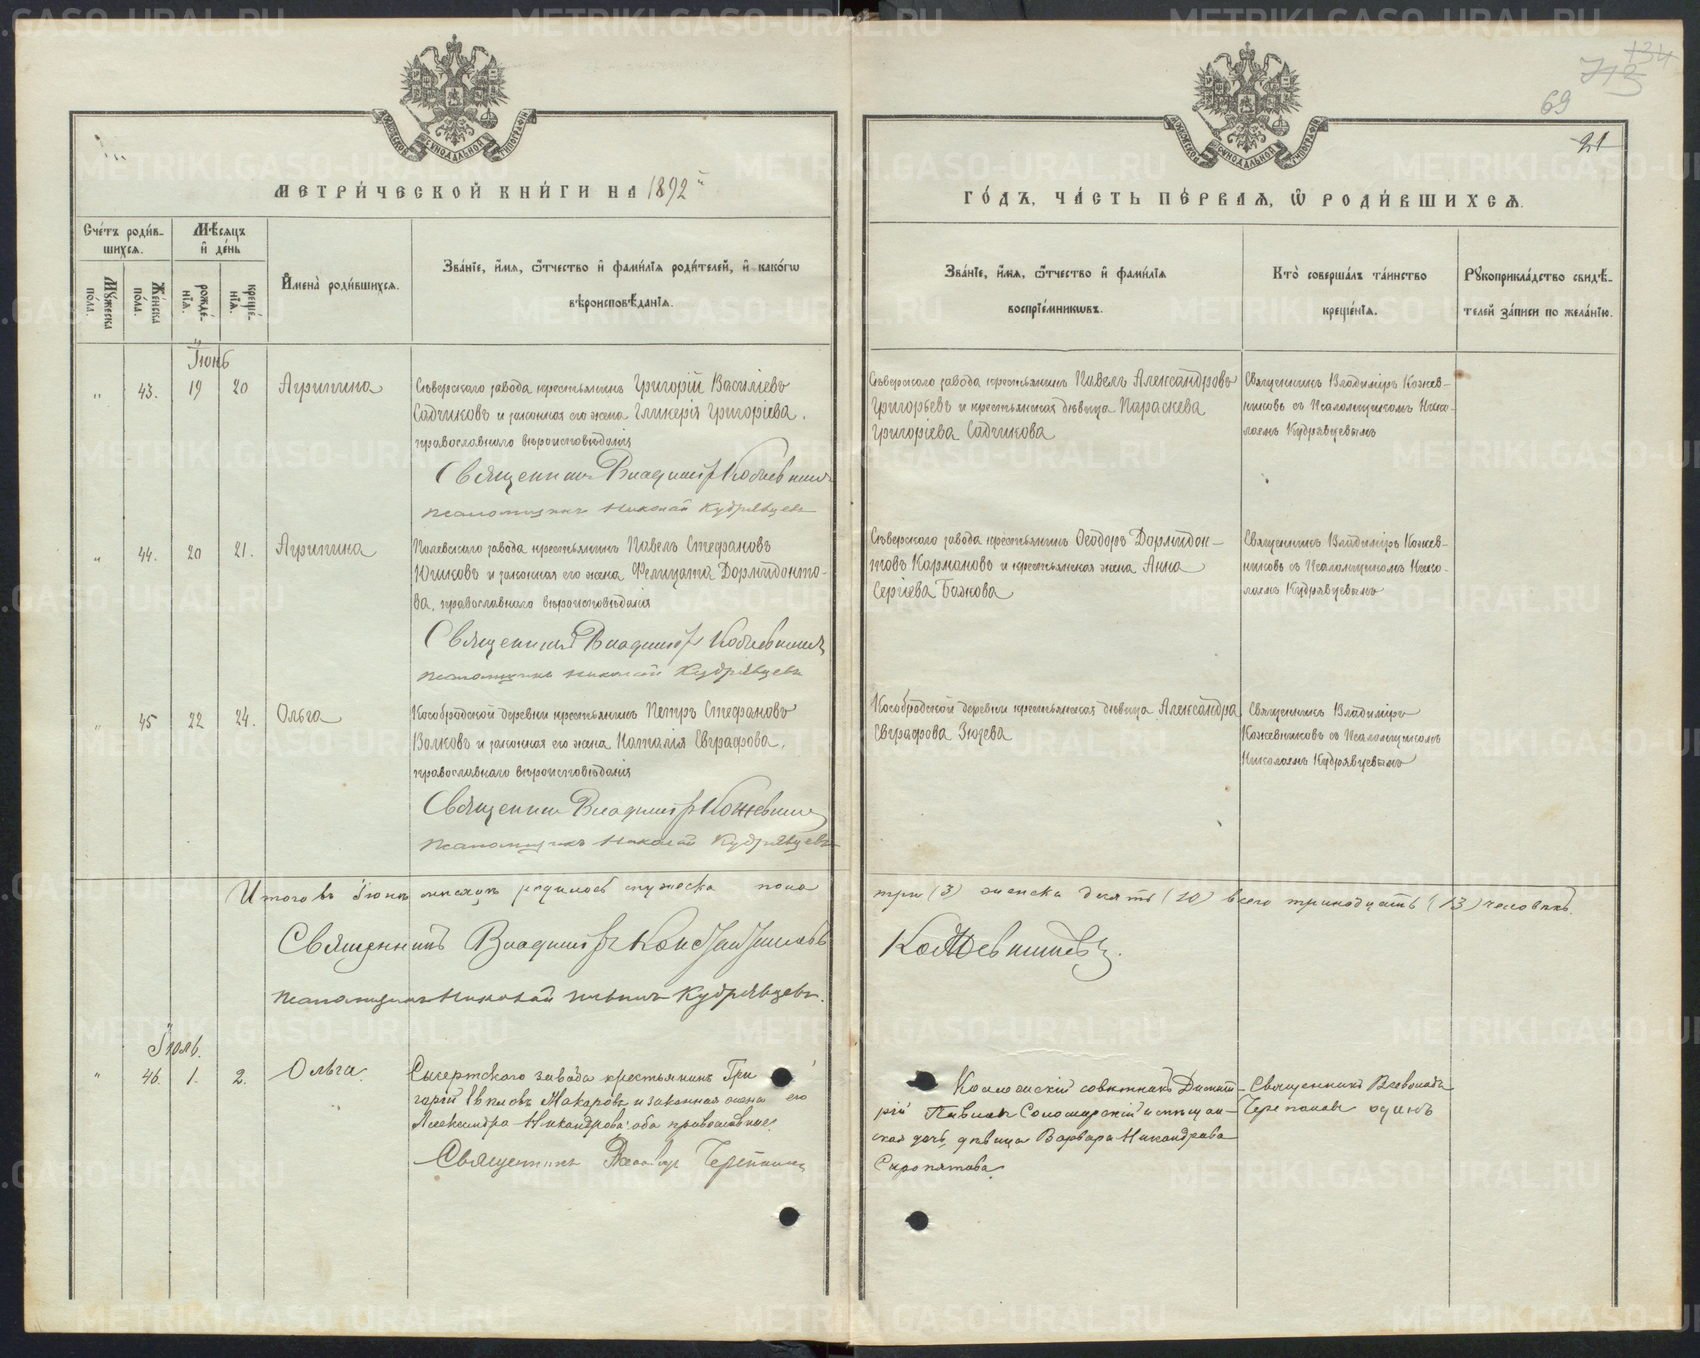 134
713
69
21
МЕТРИ́ЧЕСКОЙ КНИ́ГИ НА 1892й
ГО́ДЪ, ЧА́СТЬ ПЕ́РВАЯ, Ѡ РОДИ́ВШИХСЯ.
Сче́тъ роди́в-
шихся.
Му́жеска по́ла.
Же́нска по́ла.
Мѣ́сяцъ
и де́нь
рожде́нїя.
креще́нїя.
Имена̀ роди́вшихся.
Зва́нїе, и́мя, ѻ́тчество и фами́лїя роди́телей, и како́гѡ
вѣроисповѣ́данїя.
Зва́нїе, и́мя, ѻ́тчество и фами́лїя
воспрїе́мникѡвъ.
Кто̀ соверша́лъ та́инство
креще́нїя.
Рукоприкла́дство свидѣ́-
телей за́писи по жела́нїю.
Іюнь
„ 43. 19 20 Агрипина
Сѣверскаго завода крестьянинъ Григорій Василіевъ
Садчиковъ и законная его жена Гликерія Григоріева.
православнаго вѣроисповѣданія
Священникъ Владиміръ Кожевниковъ
псаломщикъ Николай Кудрявцевъ
Сѣверскаго завода крестьянинъ Павелъ Александровъ
Григорьевъ и крестьянская дѣвица Параскева
Григоріева Садчикова
Священникъ Владиміръ Кожев-
никовъ съ Псаломщикомъ Нико-
лаемъ Кудрявцевымъ
„ 44. 20 21. Агрипина
Полевскаго завода крестьянинъ Павелъ Стефановъ
Юшковъ и законная его жена Фелицата Дормидонто-
ва, православнаго вѣроисповѣданія
Священникъ Владиміръ Кожевниковъ
псаломщикъ Николай Кудрявцевъ
Сѣверскаго завода крестьянинъ Ѳеодоръ Дормидон-
товъ Кармановъ и крестьянская жена Анна
Сергіева Бажова
Священникъ Владиміръ Кожев-
никовъ съ Псаломщикомъ Нико-
лаемъ Кудрявцевымъ
„ 45 22 24. Ольга
Кособродской деревни крестьянинъ Петръ Стефановъ
Волковъ и законная его жена Наталія Евграфова,
православнаго вѣроисповѣданія
Священникъ Владиміръ Кожевниковъ
псаломщикъ Николай Кудрявцевъ
Кособродской деревни крестьянская дѣвица Александра
Евграфова Зюзева
Священникъ Владиміръ
Кожевниковъ съ Псаломщикомъ
Николаемъ Кудрявцевымъ
Итого въ Іюнѣ мѣсяцѣ родилось мужеска пола
три (3) женска десять (10) всего тринадцать (13) человѣкъ.
Священникъ Владиміръ Константиновъ
Кожевниковъ.
псаломщикъ Николай Кудрявцевъ.
Іюль.
„ 46. 1. 2. Ольга.
Сысертскаго завода крестьянинъ Гри
горій Макаровъ и законная жена его
Александра Никандрова: оба православные.
Священникъ Черепановъ
Коллежскій совѣтникъ Димит-
рій Павловъ Соломирскій и мѣщан-
ская дочь, дѣвица Варвара Никандрова
Сыропятова.
Священникъ Всеволодъ
Черепановъ одинъ
METRIKI.GASO-URAL.RU